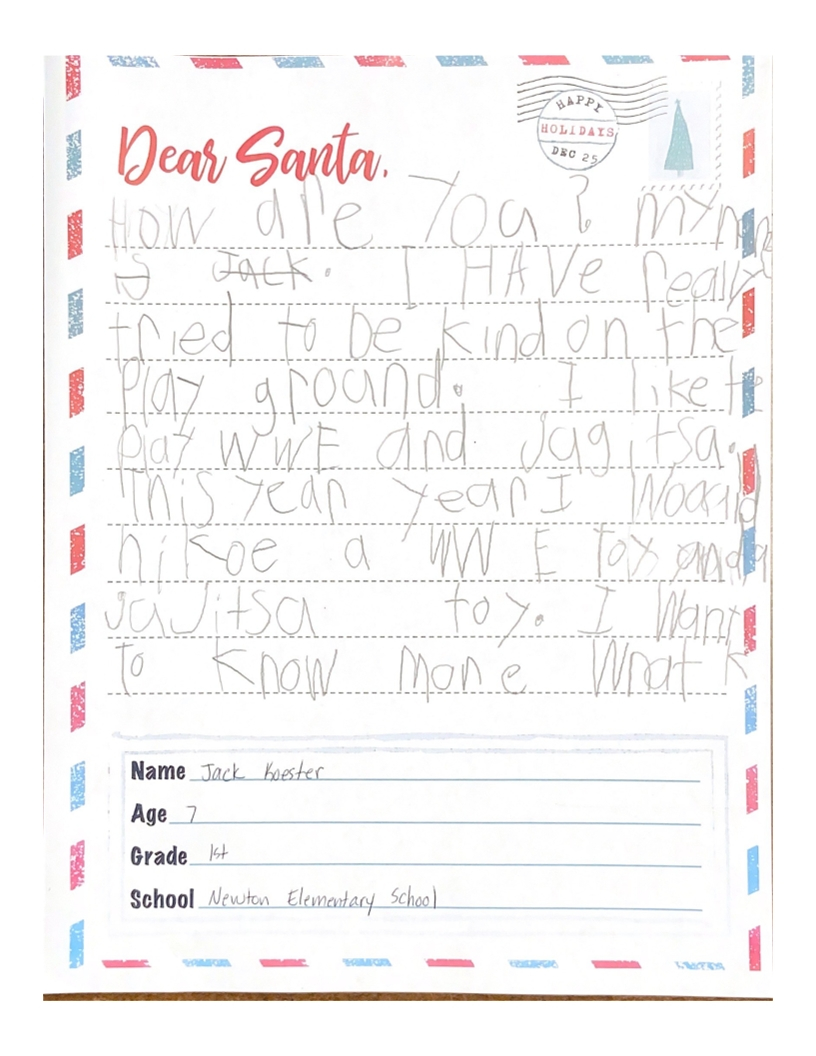 HAPPY
HOLIDAYS
DEC 25
Dear Santa,
How are You? my
is Jack. I HAVe really
tried to be kind on the
Play ground. I like to
Play WWE and jagitsa.
This year year I Woould
nikoe a WW E toy and a
jaJitsa toy. I Want
to know more What k
Name Jack Koester
Age 7
Grade 1st
School Newton Elementary School